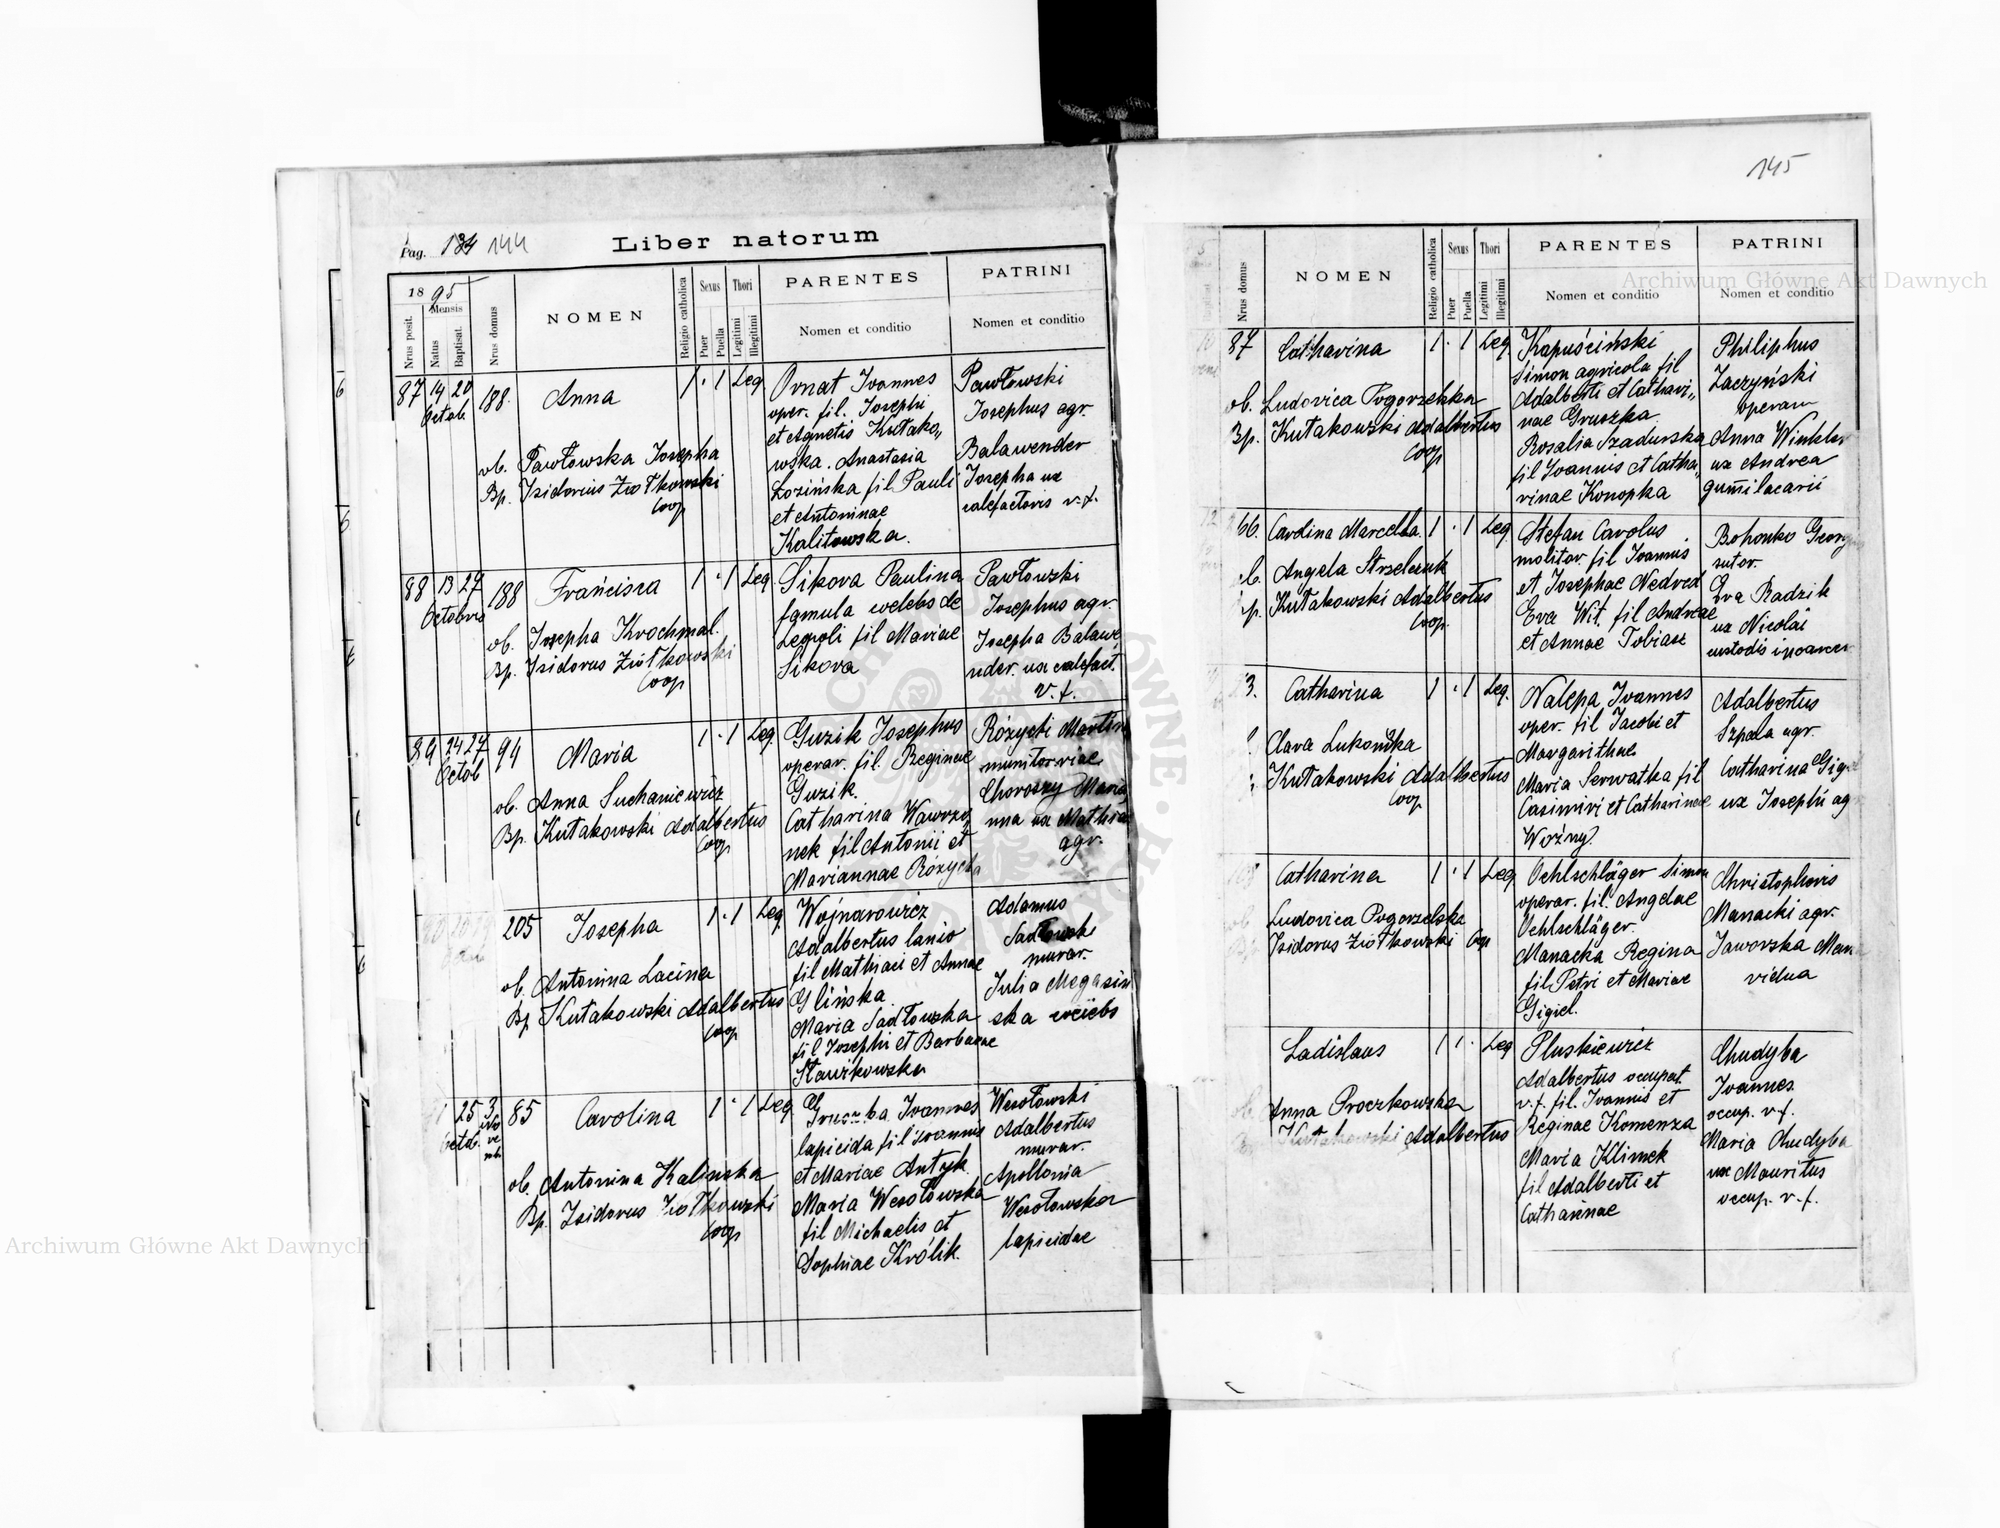 Pag. 134 144
Liber natorum
1895
Mensis
Nrus posit.
Natus
Baptisat.
Nrus domus
NOMEN
Religio catholica
Sexus
Puer
Puella
Thori
Legitimi
Illegitimi
PARENTES
Nomen et conditio
PATRINI
Nomen et conditio
87 14 20 Octob. 188. Anna 1 · 1 Leg.
ob. Pawłowska Josepha
Bp. Isidorius Ziółkowski
Coop
Ornat Joannes
oper. fil. Josephi
et Agnetis Kułako„
wska. Anastasia
Łozińska fil Pauli
et Antoninae
Kalitowska.
Pawłowski
Josephus agr.
Balawender
Josepha ux
calefactoris v.f.
88 13 27 Octobris 188 Francisca 1 · 1 Leg
ob. Josepha Krochmal.
Bp. Isidorus Ziółkowski
Coop
Sikova Paulina
famula coelebs de
Leopoli fil Mariae
Sikova
Pawłowski
Josephus agr.
Josepha Balawe
nder. ux calefact.
v. f.
89 24 27 Octob 94 Maria 1 · 1 Leg
ob. Anna Suchaniewicz
Bp. Kułakowski Adalbertus
Coop
Guzik Josephus
operar. fil. Reginae
Guzik.
Catharina Wawrzo
nek fil Antonii et
Mariannae Różycka
Różycki Martin
munitor viae
Choroszy Maria
nna ux Mathiae
agr.
205 Josepha 1 · 1 Leg.
ob. Antonina Lacina
Bp Kułakowski Adalbertus
Coop
Wojnarowicz
Adalbertus lanio
fil Mathiaei et Annae
Glińska
Maria Sadłowska
fil Josephi et Barbarae
Sławkowska
Adamus
Sadłowski
murar.
Julia Megasiń
ska coelebs
25 Octob. 3 Nove mb. 85 Carolina 1 · 1 Leg
ob. Antonina Kalinska
Bp. Isidorus Ziółkowski
Coop
Gruszka Joannes
lapicida fil Joannis
et Mariae Antyk
Maria Wesołowska
fil Michaelis et
Sophiae Królik.
Wesołowski
Adalbertus
murar.
Apollonia
Wesołowska
lapicidae
145
Nrus domus
NOMEN
Religio catholica
Sexus
Puer
Puella
Thori
Legitimi
Illegitimi
PARENTES
Nomen et conditio
PATRINI
Nomen et conditio
87 Catharina 1 · 1 Leg
ob. Ludovica Pogorzelska
Bp. Kułakowski Adalbertus
Coop
Kapuściński
Simon agricola fil
Adalberti et Cathari„
nae Gruszka
Rosalia Szadurska
fil Joannis et Catha„
rinae Konopka
Philiphus
Zaczyński
operar
Anna Winkler
ux Andrea
gumilacarii
66. Carolina Marcella 1 · 1 Leg
Angela Strzelczuk
p. Kułakowski Adalbertus
Coop.
Stefan Carolus
molitor. fil Joannis
et Josephae Nedved
Eva Wit. fil Andreae
et Annae Tobiasz
Bohonko Georg
sutor.
Eva Radzik
ux Nicolai
custodis incarcer
3. Catharina 1 · 1 Leg.
Clara Lukońska
Kułakowski Adalbertus
Coop
Nalepa Joannes
oper. fil Jacobi et
Margarithae
Maria Serwatka fil
Casimiri et Catharinae
Woźny.
Adalbertus
Szpala agr.
Catharina Gigiel
ux Josephi agr
Catharina 1 · 1 Leg
Ludovica Pogorzelska
Isidorus Ziółkowski Coop
Oehlschläger Simon
operar. fil. Angelae
Oehlschläger.
Manacka Regina
fil Petri et Mariae
Gigiel.
Christophorus
Manacki agr.
Jaworska Mari
vidua
Ladislaus 1 1 · Leg
Anna Proczkowska
Kułakowski Adalbertus
Pluskiewicz
Adalbertus occupat.
v.f. fil. Joannis et
Reginae Komenza
Maria Klimek
fil Adalberti et
Catharinae
Chudyba
Joannes.
occup. v.f.
Maria Chudyba
ux Mauritus
occup. v.f.
Archiwum Główne Akt Dawnych
Archiwum Główne Akt Dawnych